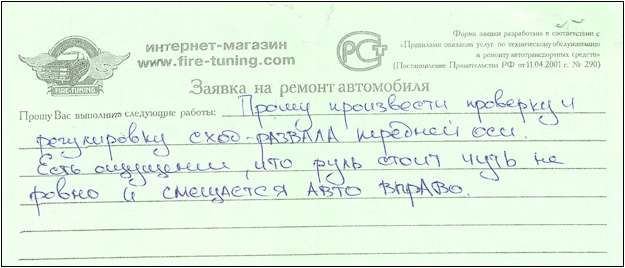 интернет-магазин
www.fire-tuning.com
FIRE-TUNING
РСТ
Форма заявки разработана в соответствии с
«Правилами оказания услуг по техническому обслуживанию
и ремонту автотранспортных средств»
(Постановление Правительства РФ от 11.04.2001 г. № 290)
Заявка на ремонт автомобиля
Прошу Вас выполнить следующие работы: Прошу произвести проверку и
регулировку сход-развала передней оси.
Есть ощущении, что руль стоит чуть не
ровно и смещается авто вправо.